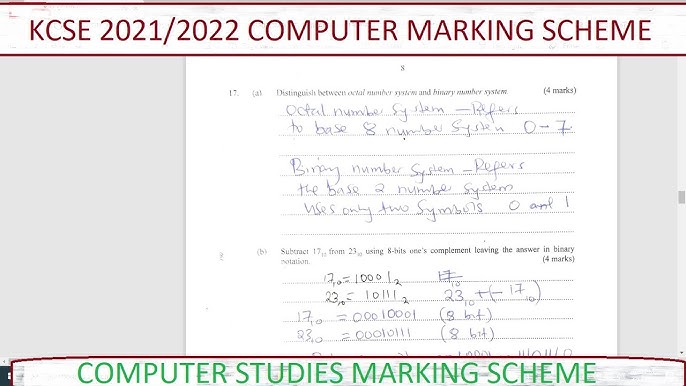 KCSE 2021/2022 COMPUTER MARKING SCHEME
8
17. (a) Distinguish between octal number system and binary number system. (4 marks)
Octal number system – Refers
to base 8 number system 0 – 7
Binary number system – Refers
the base 2 number system
uses only two symbols 0 and 1
(b) Subtract 17₁₀ from 23₁₀ using 8-bits one's complement leaving the answer in binary
notation. (4 marks)
17₁₀ = 10001₂ 17₁₀
23₁₀ = 10111₂ 23₁₀ + (– 17₁₀)
17₁₀ = 00010001 (8 bit)
23₁₀ = 00010111 (8 bit)
COMPUTER STUDIES MARKING SCHEME